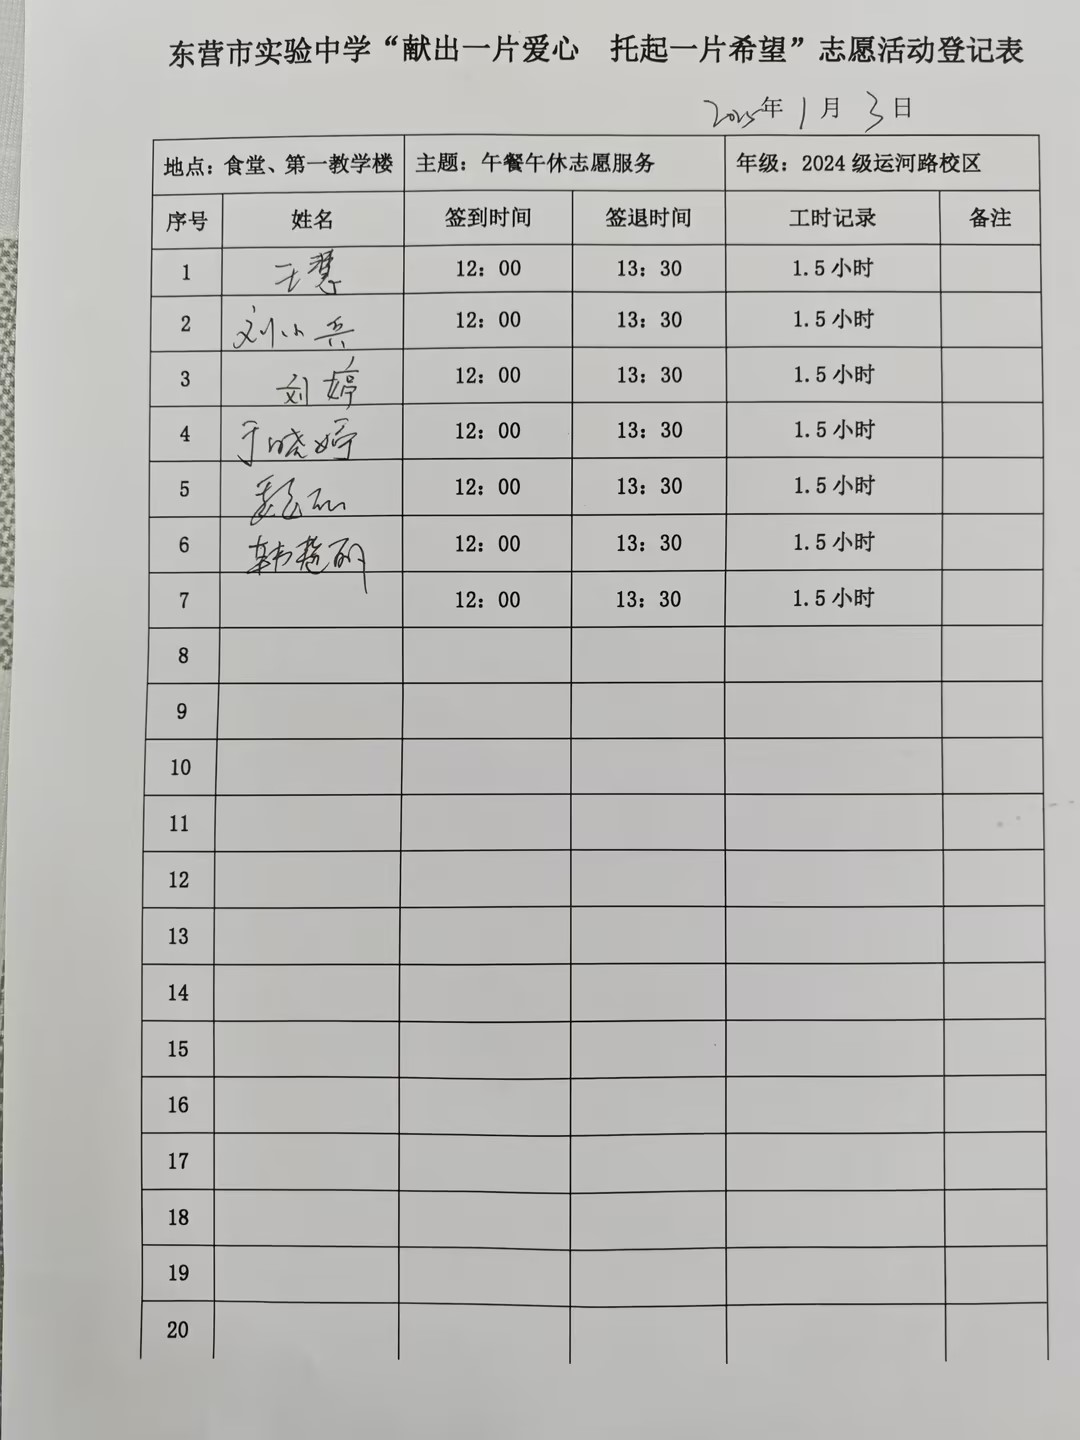 东营市实验中学“献出一片爱心 托起一片希望”志愿活动登记表
2025年 1月 3日
地点：食堂、第一教学楼 主题：午餐午休志愿服务 年级：2024 级运河路校区
序号 姓名 签到时间 签退时间 工时记录 备注
1 王慧 12：00 13：30 1.5 小时
2 刘小兵 12：00 13：30 1.5 小时
3 刘婷 12：00 13：30 1.5 小时
4 于晓婷 12：00 13：30 1.5 小时
5 12：00 13：30 1.5 小时
6 12：00 13：30 1.5 小时
7 12：00 13：30 1.5 小时
8
9
10
11
12
13
14
15
16
17
18
19
20